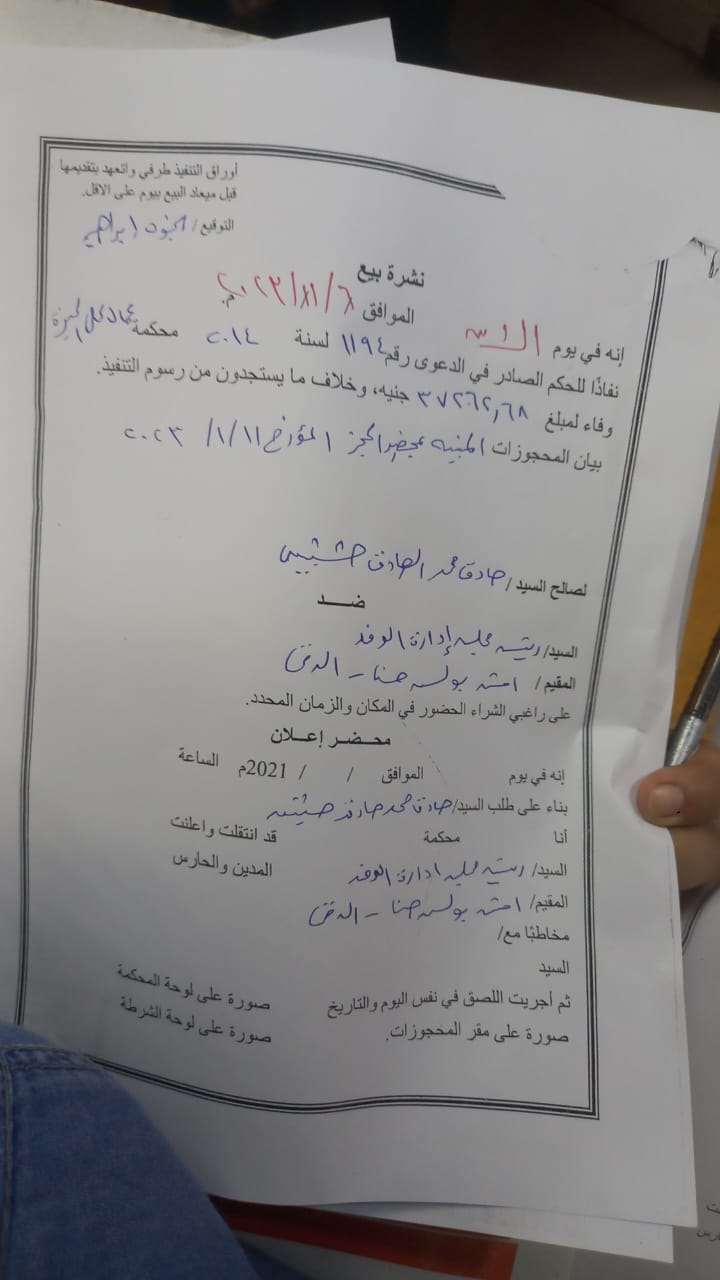 أوراق التنفيذ طرفي واتعهد بتقديمها
قبل ميعاد البيع بيوم على الاقل.
التوقيع / ابراهيم
نشرة بيع
إنه في يوم الاثنين الموافق ٦/١١/٢٠٢٣م.
نفاذًا للحكم الصادر في الدعوى رقم ١١٩٤ لسنة ٢٠١٤ محكمة عمال الجيزة
وفاء لمبلغ ٣٧٢٦٢,٦٨ جنيه، وخلاف ما يستجدون من رسوم التنفيذ.
بيان المحجوزات المبينه بمحضر الحجز المؤرخ ١١/١/٢٠٢٣
لصالح السيد / صادق محمد الصادق حشيش
ضد
السيد/ رئيس مجلس إدارة الوفد
المقيم / ١ ش بولس حنا - الدقى
على راغبي الشراء الحضور في المكان والزمان المحدد.
محضر إعلان
إنه في يوم الموافق / / 2021م الساعة
بناء على طلب السيد/ صادق محمد صادق حشيش
أنا محكمة قد انتقلت واعلنت
السيد/ رئيس مجلس ادارة الوفد المدين والحارس
المقيم/ ١ ش بولس حنا - الدقى
مخاطبًا مع/
السيد
ثم أجريت اللصق في نفس اليوم والتاريخ صورة على لوحة المحكمة
صورة على مقر المحجوزات. صورة على لوحة الشرطة